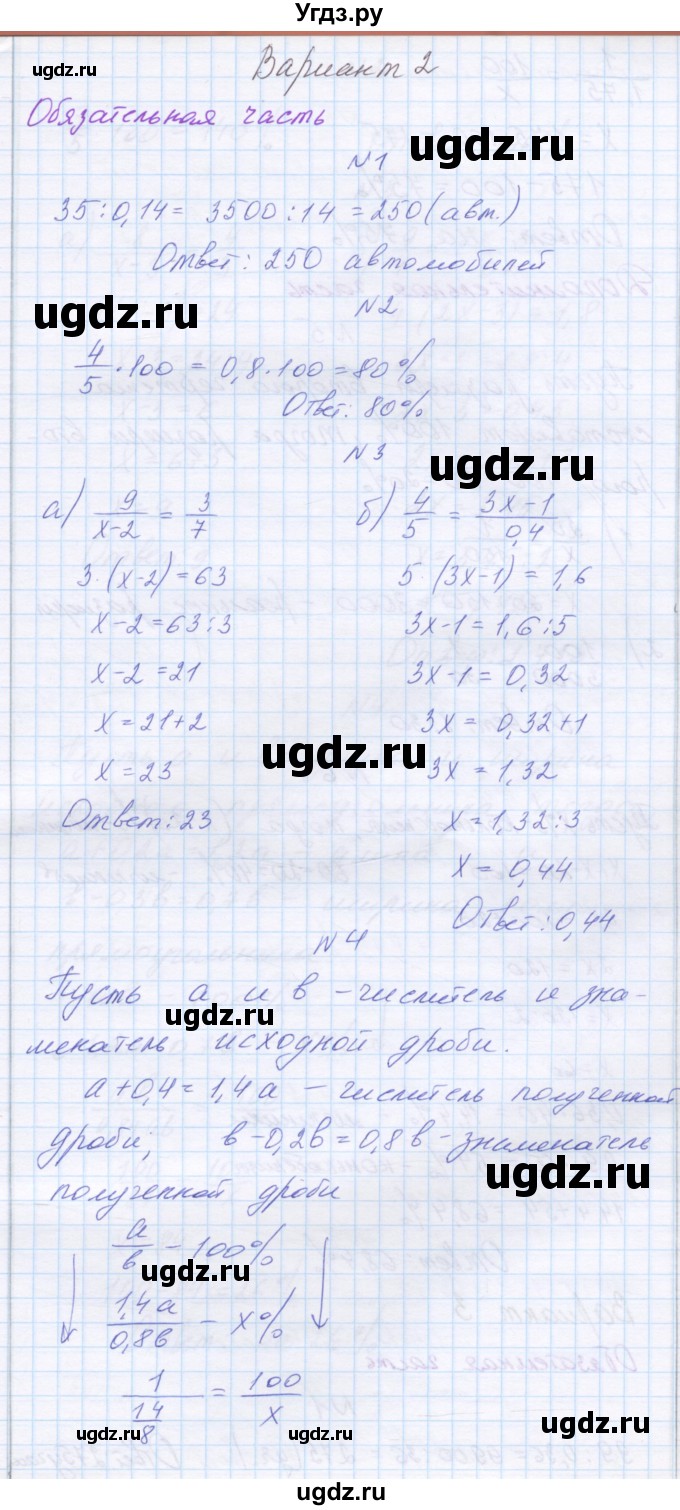 Угдз.ру
Вариант 2
Обязательная часть
N1
35:0,14 = 3500:14 = 250 (авт.)
Ответ: 250 автомобилей
N2
4/5 · 100 = 0,8 · 100 = 80%
Ответ: 80%
N3
а) 9/(x-2) = 3/7
3·(x-2) = 63
x-2 = 63:3
x-2 = 21
x = 21+2
x = 23
Ответ: 23
б) 4/5 = (3x-1)/0,4
5·(3x-1) = 1,6
3x-1 = 1,6:5
3x-1 = 0,32
3x = 0,32+1
3x = 1,32
x = 1,32:3
x = 0,44
Ответ: 0,44
N4
Пусть a и b - числитель и зна-
менатель исходной дроби.
a+0,4 = 1,4a - числитель полученной
дроби; b-0,2b = 0,8b - знаменатель
полученной дроби
a/b - 100%
1,4a/0,8b - x%
1/(14/8) = 100/x
ugdz.ru
ugdz.ru
ugdz.ru
ugdz.ru
ugdz.ru
ugdz.ru
ugdz.ru
ugdz.ru
ugdz.ru
ugdz.ru
ugdz.ru